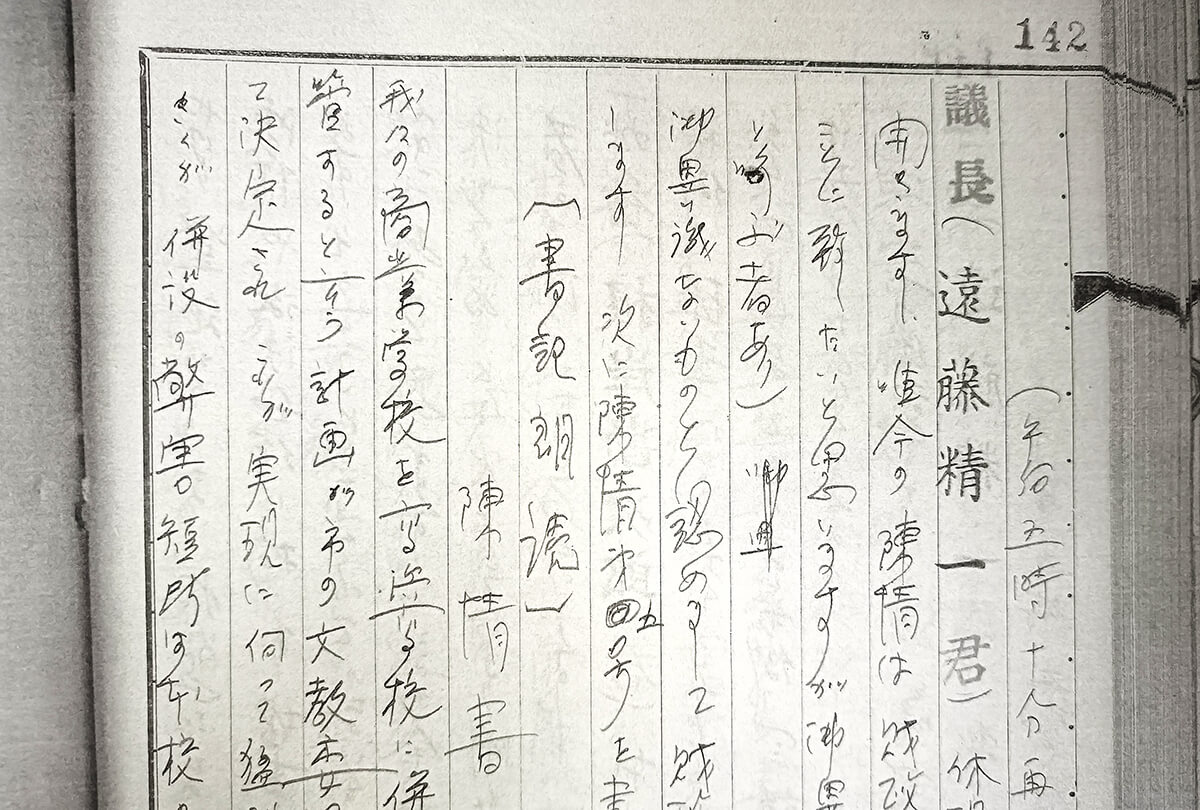 142
(午后五時十分再
議長(遠藤精一君)休
開きます 唯今の陳情は財政
ことに致したいと思いますが御異
と呼ぶ者あり) 御異
御異議ないものと認めまして 財
します 次に陳情第五号を書
(書記朗読)
陳情書
我々の商業学校を高等学校に併
置すると言う計画が市の文教委の
て決定され これが実現に向って猛
きくが 併設の弊害短所は本校の